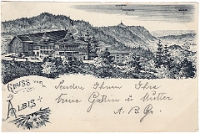 GRUSS vom
ALBIS
Senden Ihnen Ihre
Treue Gatten u Mutter
A. B. G.